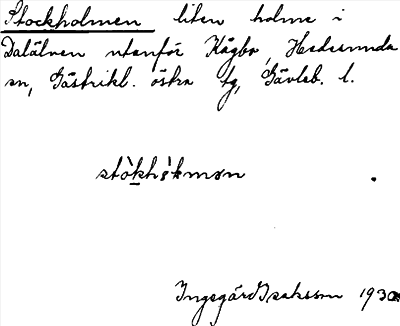 Stockholmen liten holme i
Dalälven utanför Kågbo, Hedesunda
sn, Gästrikl. östra tg, Gävleb. l.
stòkhòkmøn
Ingegärd Isaksson 1930